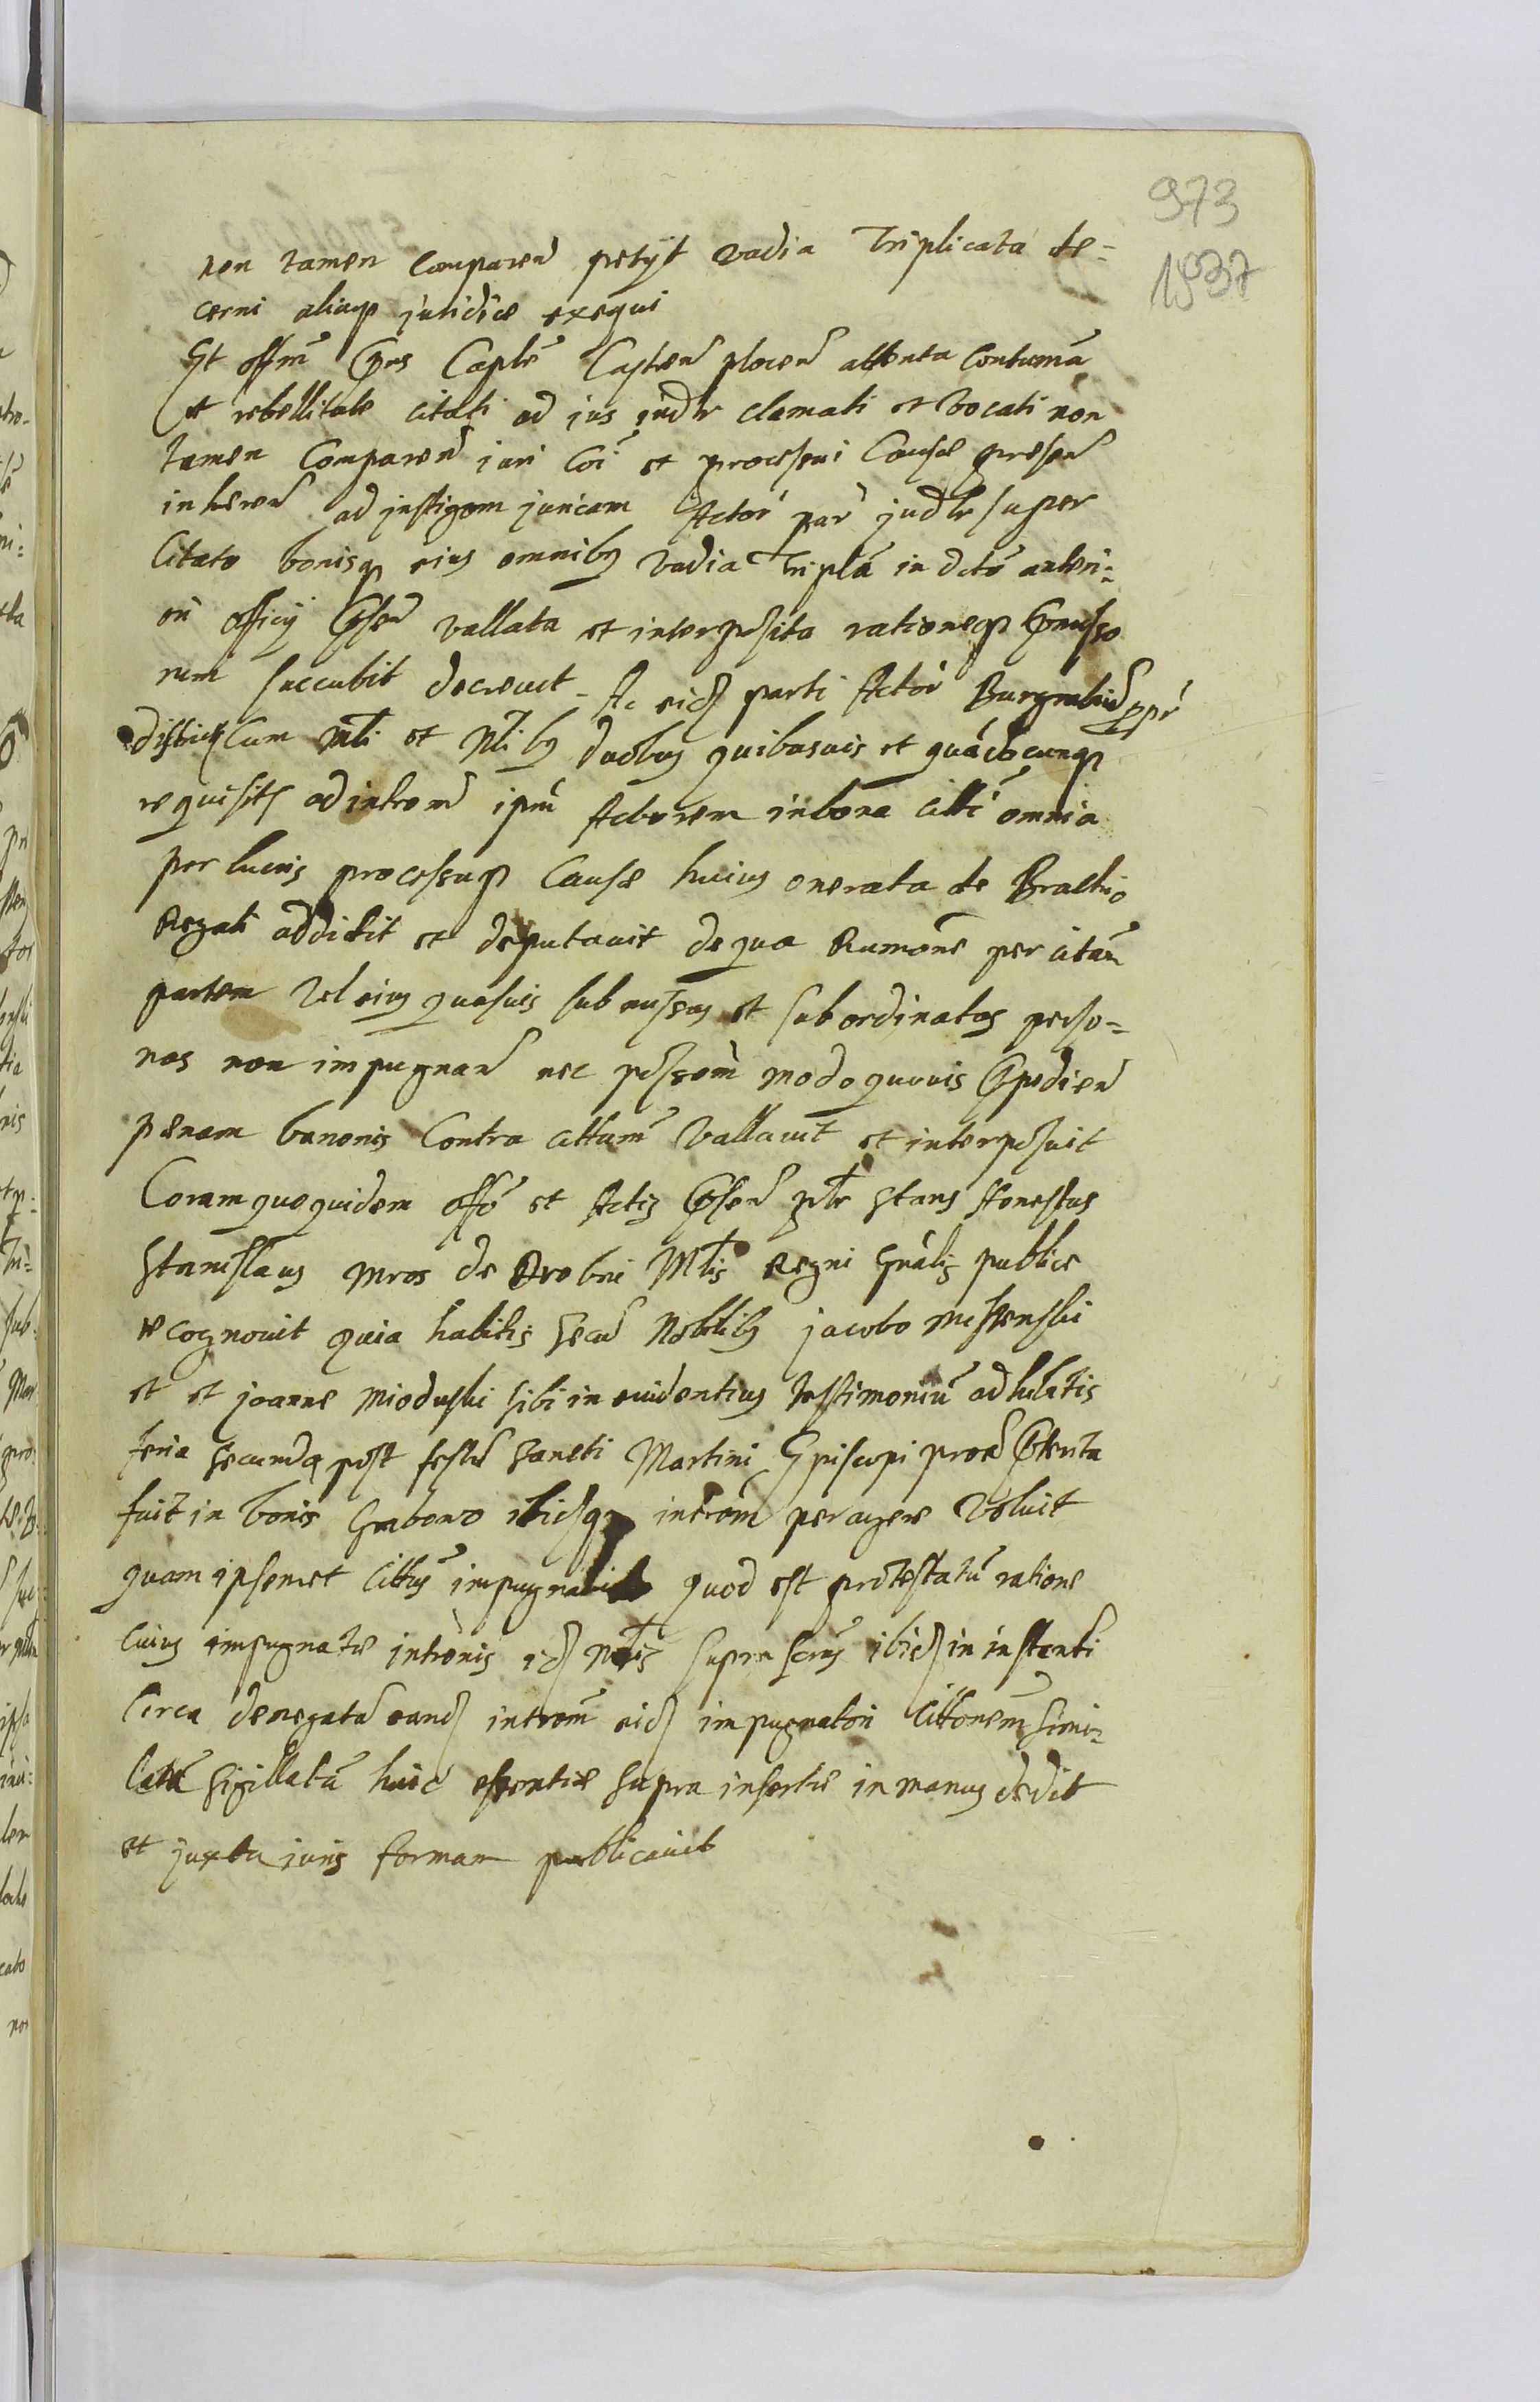 973
1537
non tamen comparen petijt vadia Triplicata de-
cerni aliaqz juridice exequi
Et offm Cptaneus Caplis Castren plocen attenta Contuma
et rebellitate citati ad jus judlr clamati et vocati non
tamen Comparen juri Coi et processui Causae presen
inheren ad instigom juricam Actor par judlr super
Citato bonisqz eius omnibus vadia Tripla in dcto anteri-
ori officij psen vallata et interposita rationeqz pmisso
rum succubit decrevit Ac eidz parti Actor Burgrabium ppr
distinctum Mli et Nlibus duobus quibusvis et quandocunqz
requisitis ad introm ipm Actorem in bona citti omnia
per lucris processuqz Causae huius onerata de Brachio
Regali addidit et deputavit de qua Rumone per citam
partem Vel eius quasvis submissas et subordinatas perso-
nas non impugnan nec possom modo quovis Impedien
penam banonis Contra cittum Vallavit et interposuit
Coram quoquidem offo et Actis psen plr stans Honestus
Stanislaus Mroz de Drobni Mlis Regni Gnalis publice
recognovit quia habitis secum Nobilibus jacobo
et et joanne Mioduski sibi in evidentius testimonium adhibitis
feria secunda post festum Sancti Martini Episcopi prox pterita
fuit in bonis Grabowo ibidzqz introm peragere Voluit
quam ipsemet Cittus impugnavit quod est protestatum ratione
Cuius impugnatae intronis idz Mlis supra scrus ibidz in instanti
Circa denegatam eandz introm eidz impugnatori Cittonem simi-
latam sigillatam huic essentiae supra insertae in manus dedit
et juxta juris formam publicavit